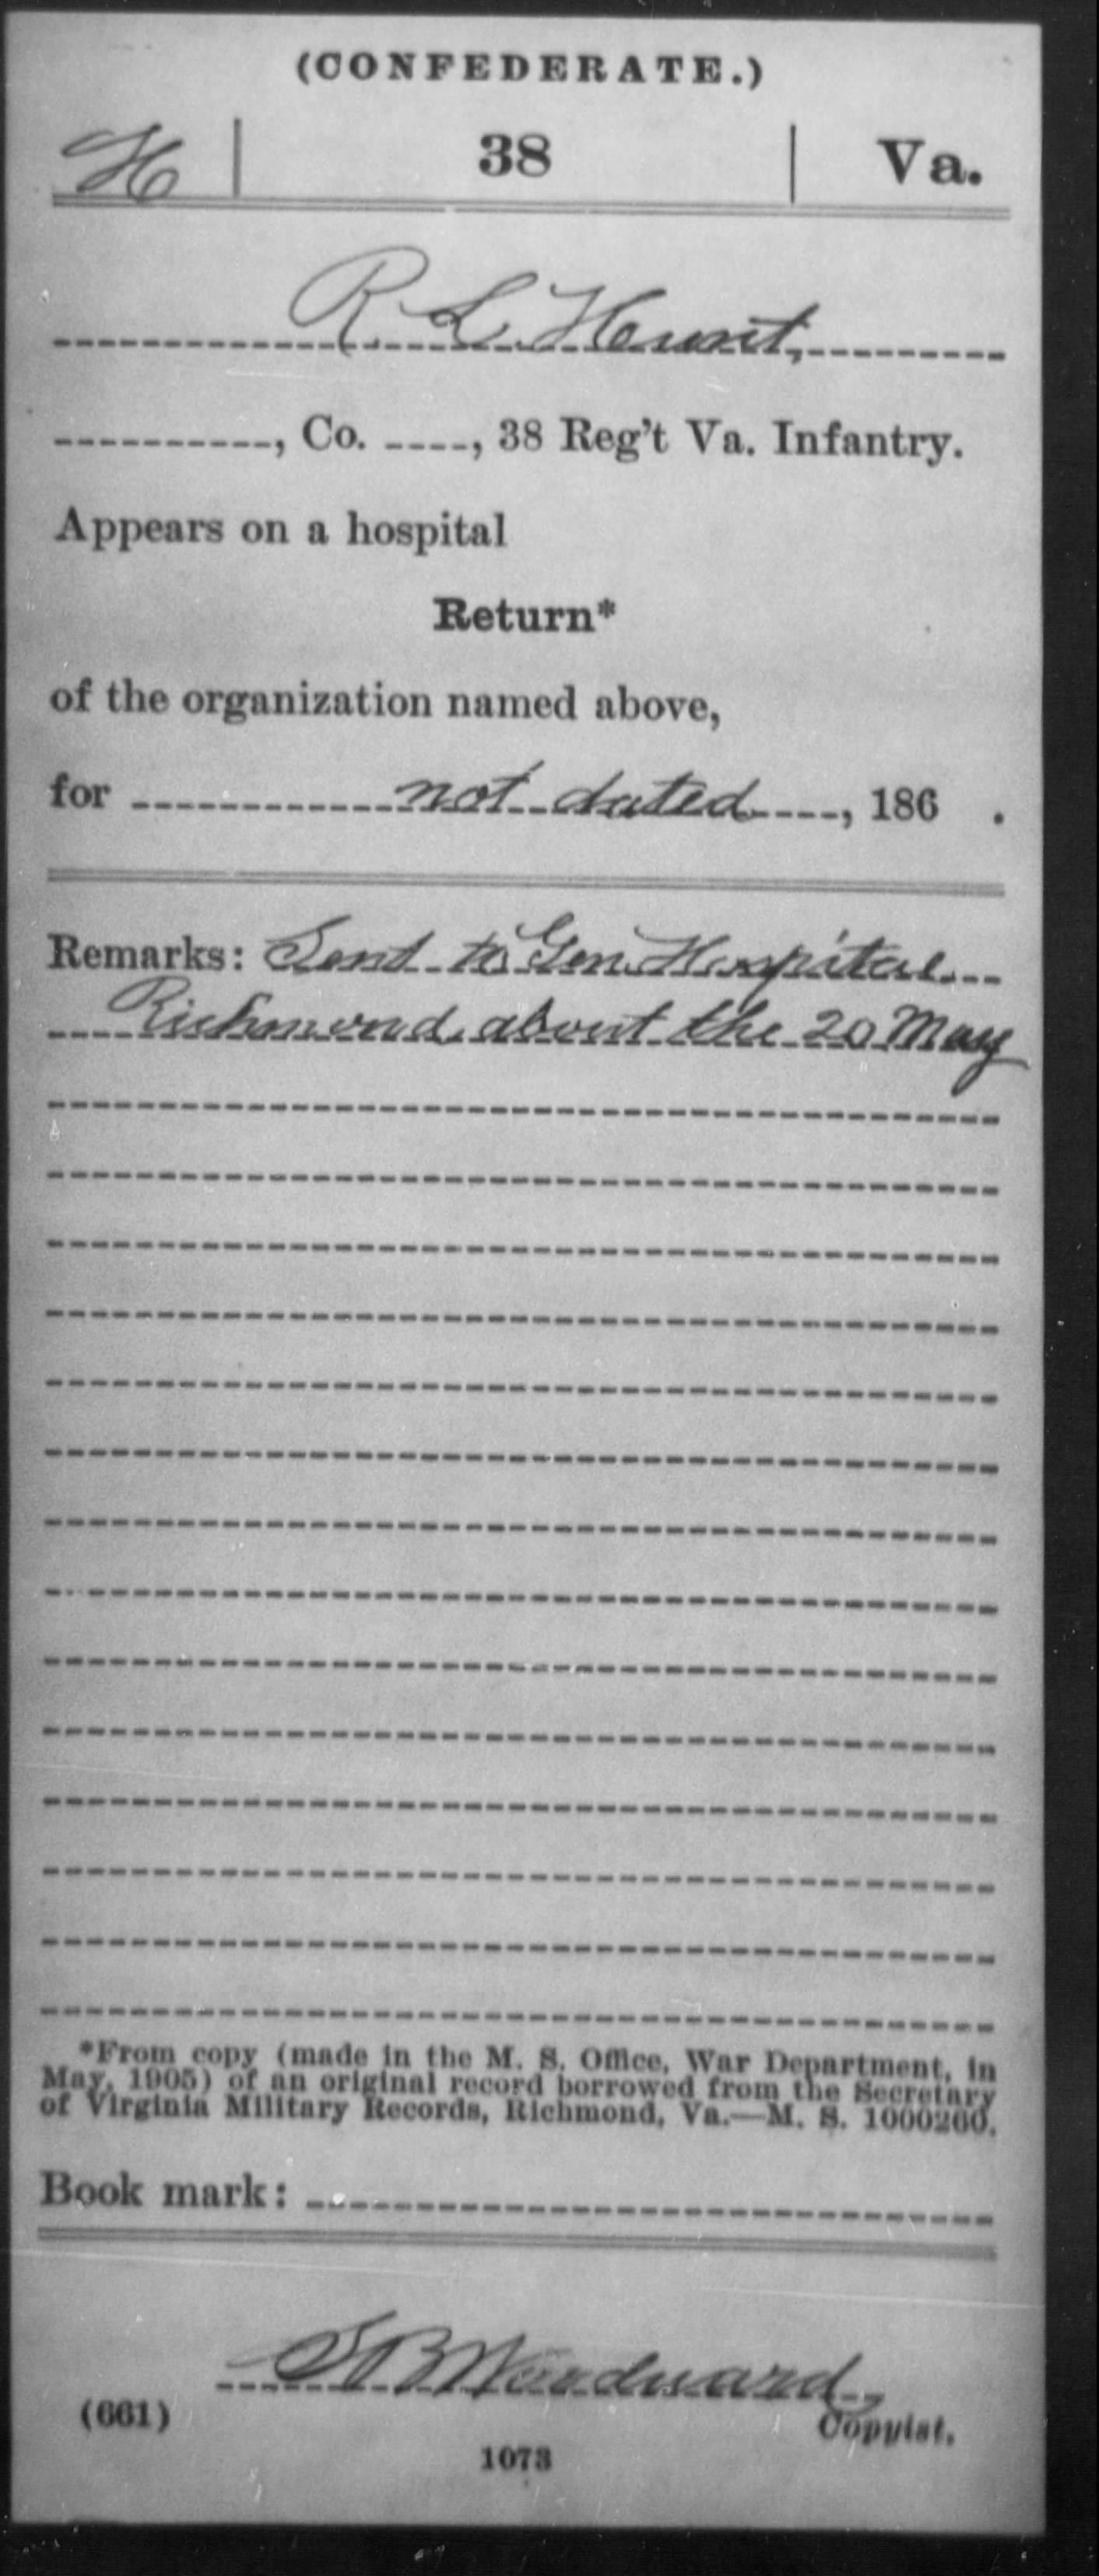 (CONFEDERATE.)
H | 38 | Va.
R. L. Hunt,
, Co. , 38 Reg't Va. Infantry.
Appears on a hospital
Return*
of the organization named above,
for not dated, 186 .
Remarks: Sent to Gen. Hospital
Richmond, about the 20 May
*From copy (made in the M. S. Office, War Department, in
May, 1905) of an original record borrowed from the Secretary
of Virginia Military Records, Richmond, Va.—M. S. 1000260.
Book mark:
S B Woodward
(661) Copyist.
1073